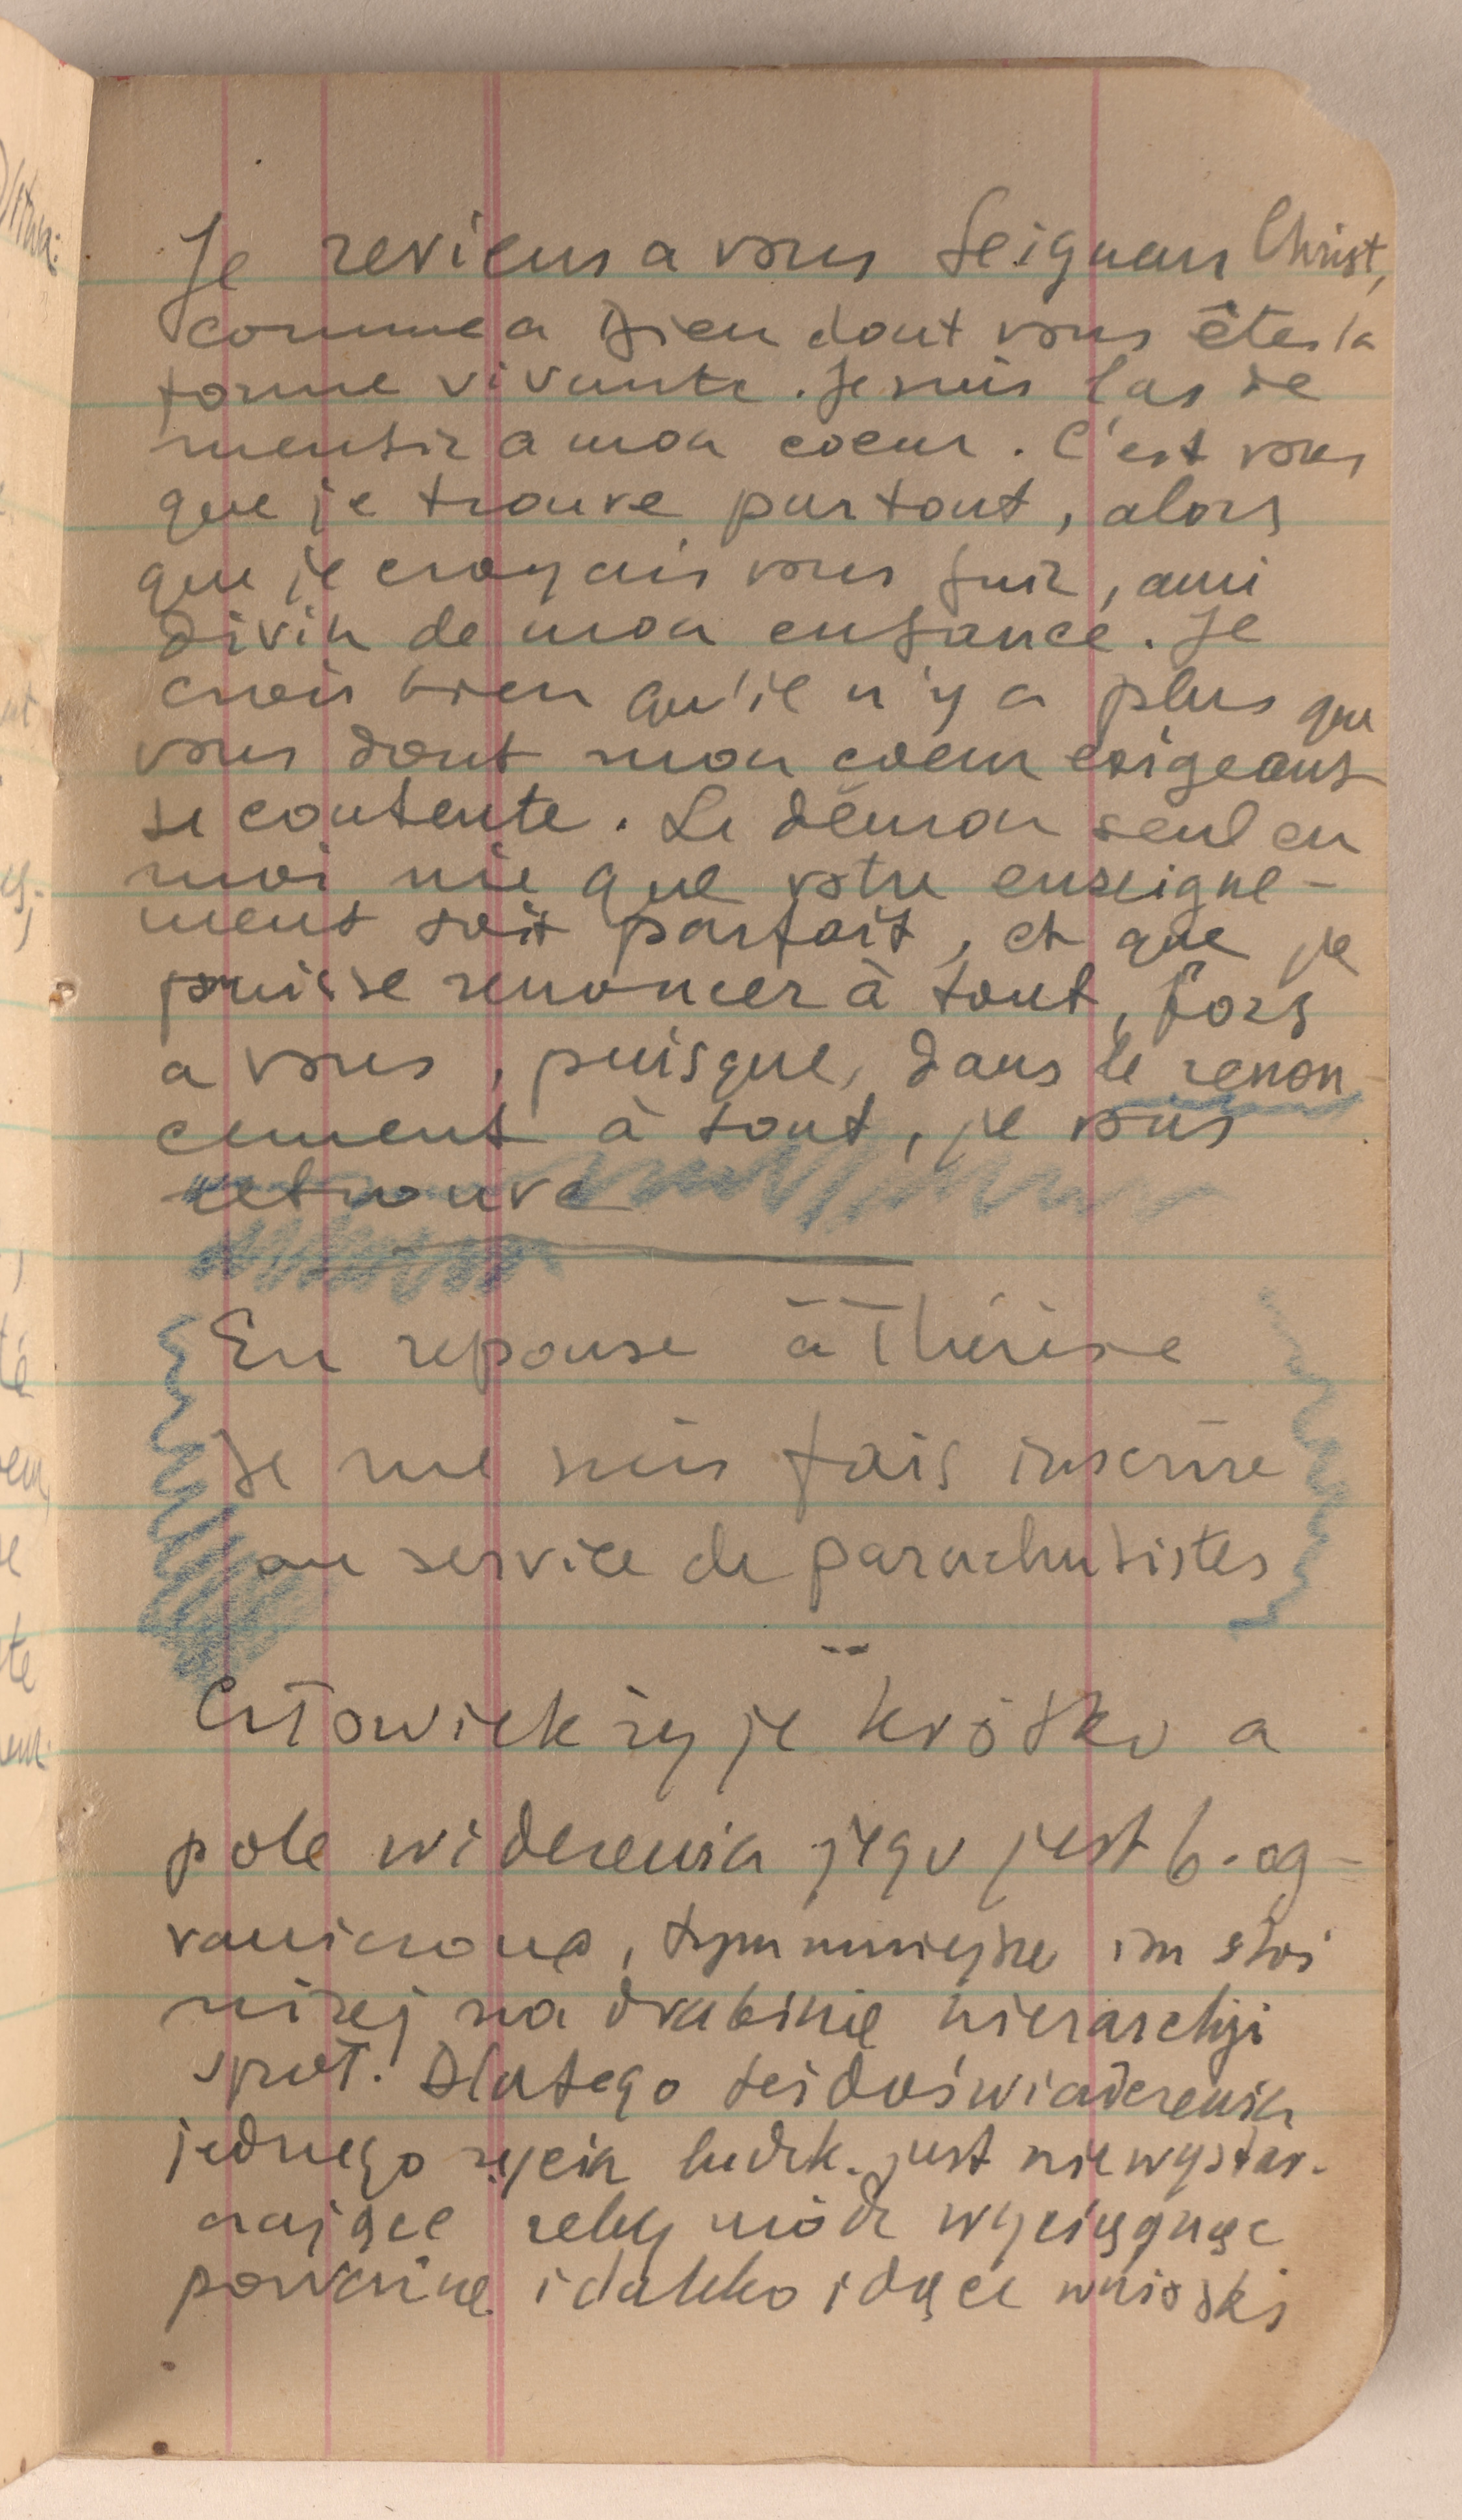 Je reviens a vous Seigneur Christ,
comme a Dieu dont vous êtes la
forme vivante. Je suis las de
mentir a mon coeur. C'est vous
que je trouve partout, alors
que je croyais vous fuir, ami
divin de mon enfance. Je
crois bien qu'il n'y a plus que
vous dont mon coeur exigeant
se contente. Le démon seul en
moi nie que votre enseigne-
ment soit parfait, et que je
puisse renoncer à tout, fors
a vous, puisque, dans le renon
cement à tout, je vous
retrouve
En reponse à Thérèse
Je me suis fais inscrire
au service de parachutistes
Człowiek żyje krótko a
pole widzenia jego jest b. og-
raniczone, tym mniejsze im stoi
niżej na drabinie hierarchji
społ. Dlatego też doświadczenia
jednego życia ludzk. jest niewystar-
czające żeby módz wyciągnąć
poważne i daleko idące wnioski